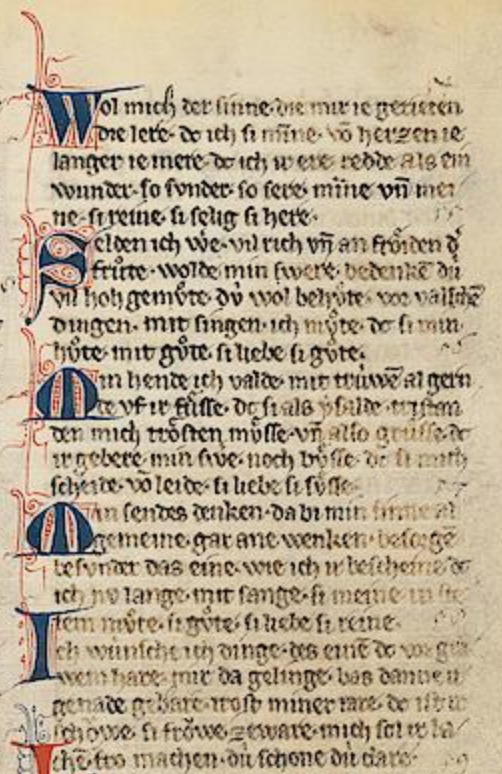 Wol mich der sinne· die mir ie gerieten
die lere· dc ich si mīne· vō herzen ie
langer ie mere· dc ich ir ere· rehte als ein
wunder· so sunder· so sere· mīne vñ mei
ne· si reine· si selig si here·
Selden ich wˢe· vil rich vñ an frͦiden dˢ
frůte· wolde min swere· bedenkē dú
vil hoh gemůte· dú wol behůte· vor valschē
dingen· mit singen· ich můte· dc si min
hůte· mit gůte· si liebe si gůte·
Min hende ich valde· mit trúwē al gern
de vf ir fůsse· dc si als ysalde· tristan
den mich trͦsten můsse· vñ also grůsse· dc
ir gebere· min swˢe· noch bůsse· dc si mich
scheide· vō leide· si liebe si sůsse·
Min sendes denken· da bi min sinne al
gemeine· gar ane wenken· besorgē
besunder das eine· wie ich ir bescheine dc
ich nv lange· mit sange· si meine in ste
tem můte· si gůte· si liebe si reine·
Ich wúnsche ich dinge· des einē dc vor gra
wem hare· mir da gelinge· bas danne ir
genade gebare· trost miner iare· dc ist ir
schͦwe· si frͦwe zeware· mich sol ir la
chē fro machen· dú schone dú clare·